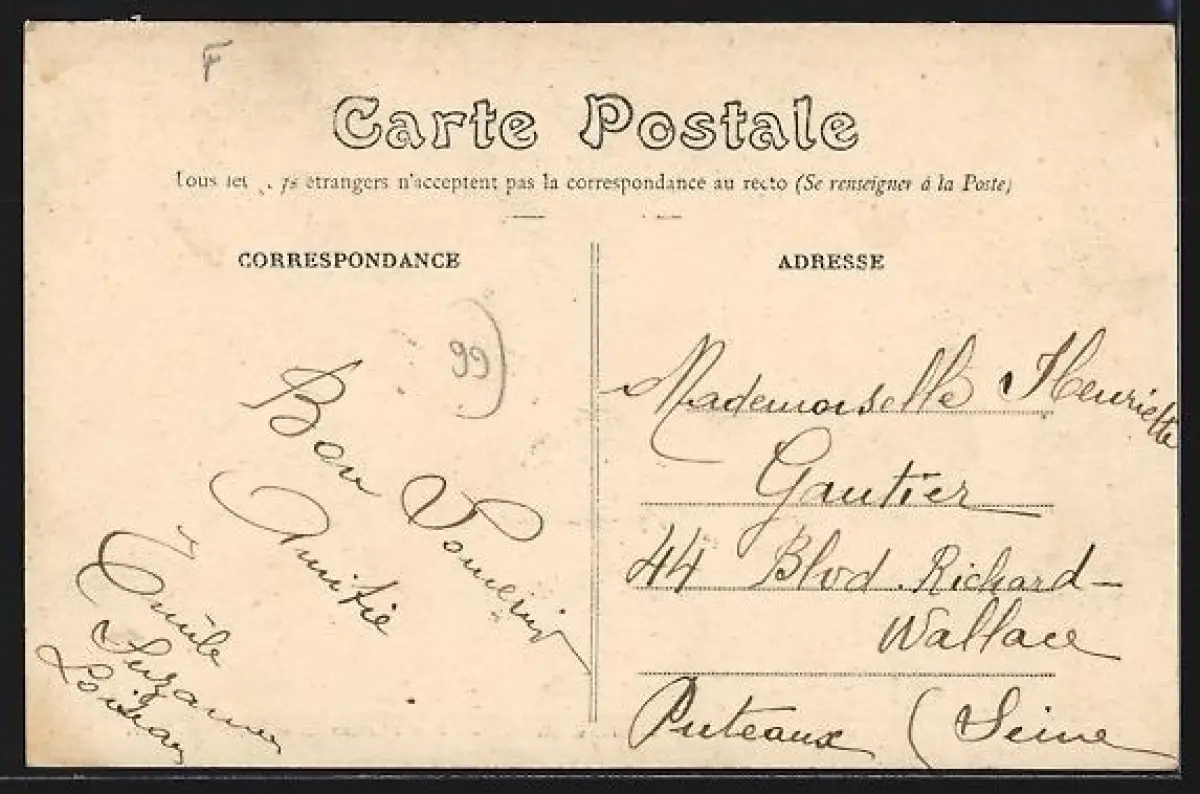 F
Carte Postale
étrangers n'acceptent pas la correspondance au recto (Se renseigner à la Poste)
CORRESPONDANCE
99)
Bon Souvenir
Amitié
Emile
Suzanne
ADRESSE
Mademoiselle Henriette
Gautier
44 Blvd. Richard-
Wallace
Puteaux (Seine